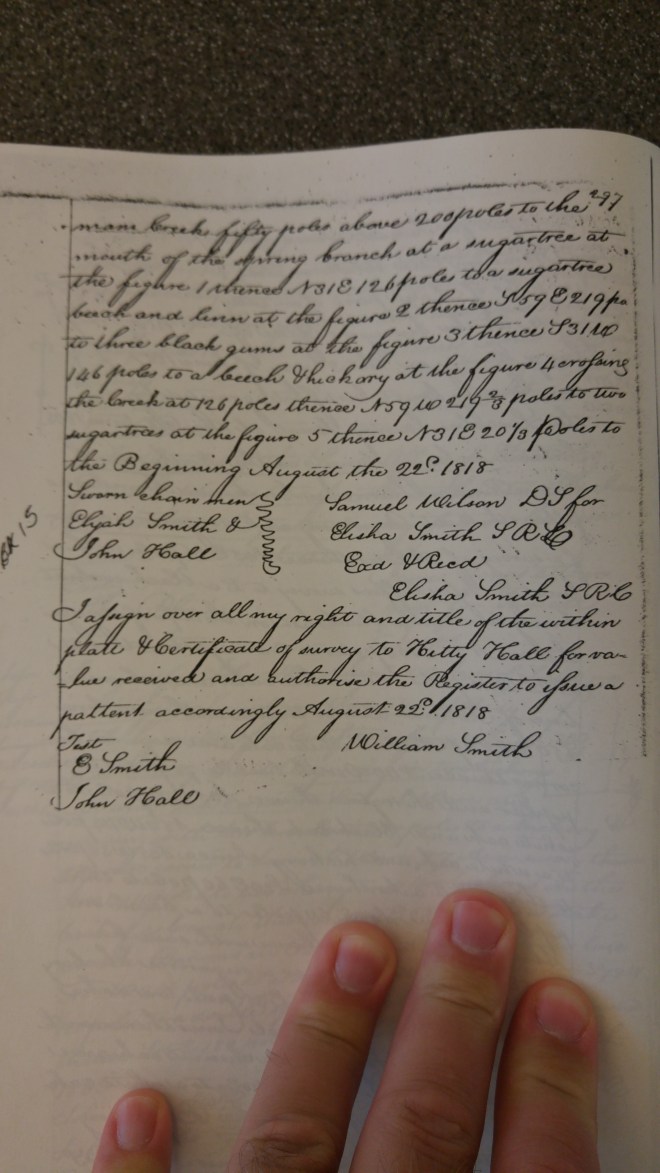 297
main Creek fifty poles above 200 poles to the
mouth of the spring branch at a sugartree at
the figure 1 thence N31E 126 poles to a sugartree
beech and linn at the figure 2 thence S59E 219 po
to three black gums at the figure 3 thence S31W
146 poles to a beech & hickory at the figure 4 crossing
the Creek at 126 poles thence N59W 219 2/3 poles to two
sugartrees at the figure 5 thence N31E 20 1/3 Poles to
the Beginning August the 22d. 1818
Sworn chain men Samuel Wilson DS for
Elijah Smith & Elisha Smith SRC
John Hall Exd & Recd
Elisha Smith SRC
I assign over all my right and title of the within
platt & Certificate of survey to Kitty Hall for va-
-lue received and authorise the Register to issue a
pattent accordingly August 22d. 1818
Test William Smith
E Smith
John Hall
BK 15